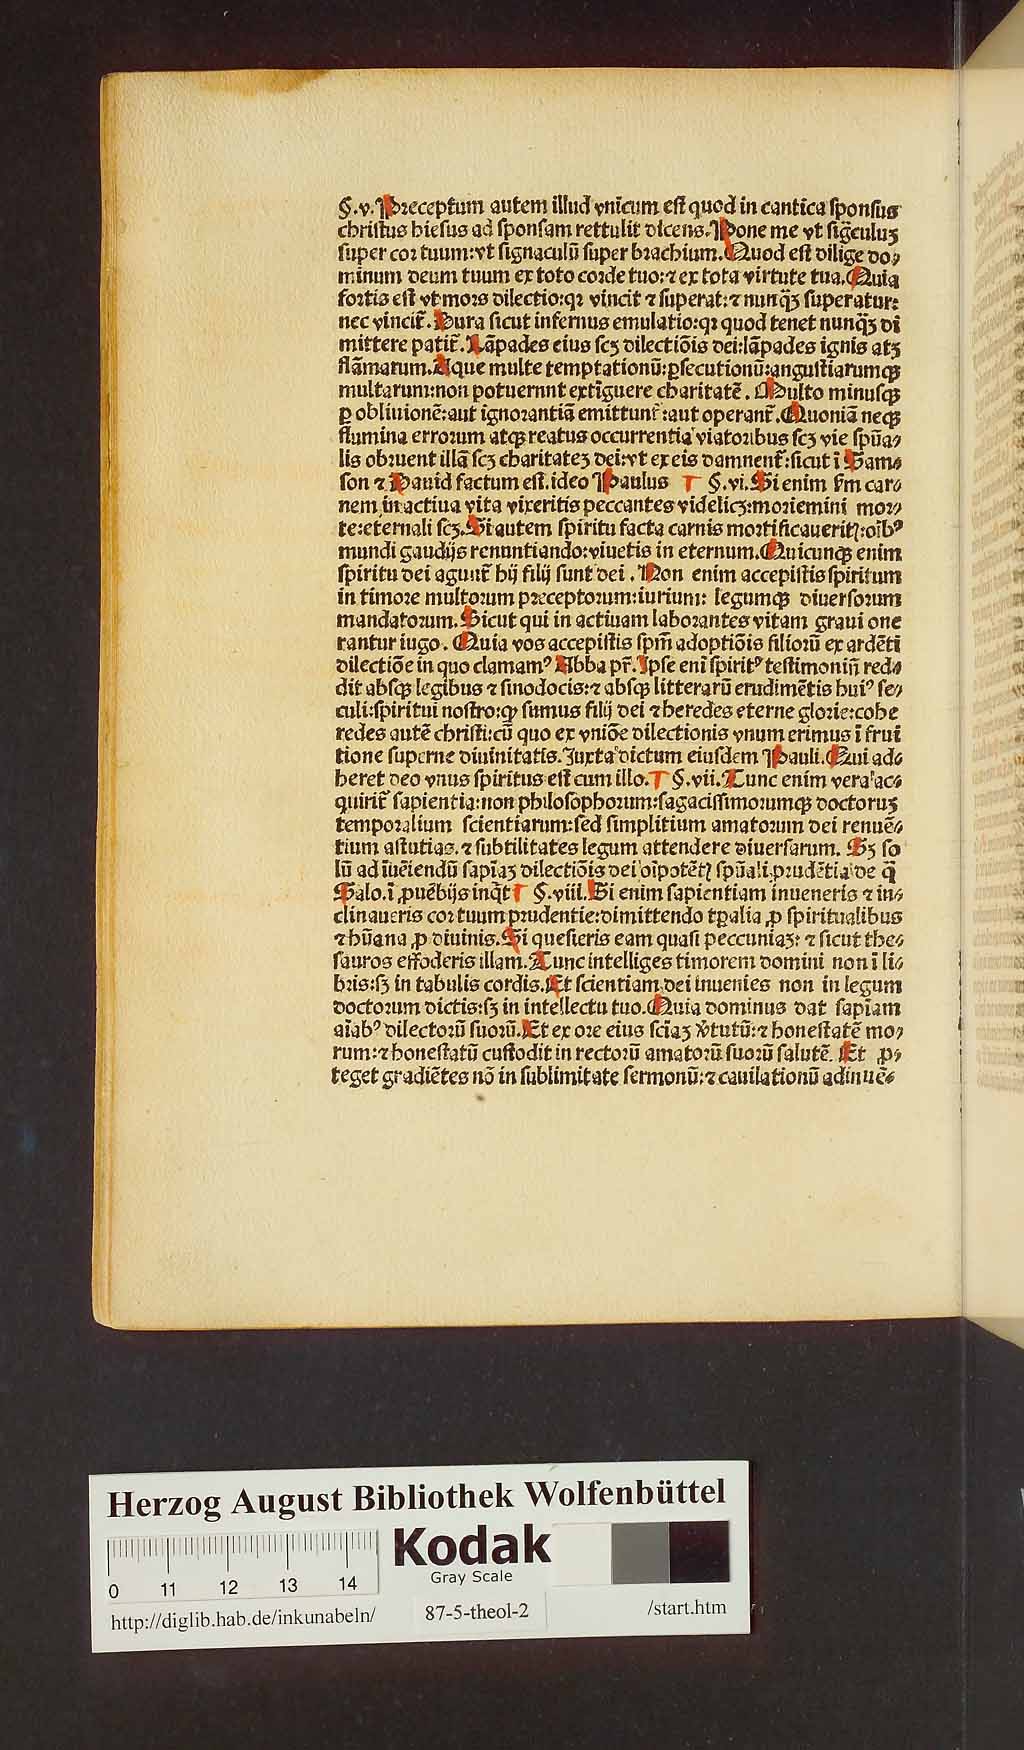 §.v. Preceptum autem illud vnicum est quod in cantica sponsus
christus hiesus ad sponsam rettulit dicens. Pone me vt sig̃culuʒ
super cor tuum: vt signaculū super brachium. Quod est dilige do⸗
minum deum tuum ex toto corde tuo: ⁊ ex tota virtute tua. Quia
fortis est vt mors dilectio: qꝛ vincit ⁊ superat: ⁊ nunq̃ʒ superatur:
nec vincit̃. Dura sicut infernus emulatio: qꝛ quod tenet nunq̃ʒ di
mittere patit̃. Lãpades eius scʒ dilectiōis dei: lãpades ignis atʒ
flãmarum. Aque multe temptationū: ꝑsecutionū: angustiarumqꝫ
multarum: non potuernnt extiguere charitatē. Multo minusqꝫ
ꝑ obliuionē: aut ignorantiã emittunt̃: aut operant̃. Quoniã neqꝫ
flumina errorum atqꝫ reatus occurrentia viatoribus scʒ vie spũa⸗
lis obruent illã scʒ charitateʒ dei: vt ex eis damnent̃: sicut ī Sam⸗
son ⁊ Dauid factum est. ideo Paulus §.vi. Si enim ẜm car⸗
nem in actiua vita vixeritis peccantes videlicʒ: moriemini mor⸗
te: eternali scʒ. Si autem spiritu facta carnis mortificaueritꝭ: oībꝰ
mundi gaudijs renuntiando: viuetis in eternum. Quicunqꝫ enim
spiritu dei agunt̃ hij filij sunt dei. Non enim accepistis spiritum
in timore multorum preceptorum: iurium: legumqꝫ diuersorum
mandatorum. Sicut qui in actiuam laborantes vitam graui one
rantur iugo. Quia vos accepistis spm̃ adoptiōis filiorū ex ardēti
dilectiōe in quo clamamꝰ Abba pr̃. Ipse eni spiritꝰ testimoniū red⸗
dit absqꝫ legibus ⁊ sinodocis: ⁊ absqꝫ litterarū erudimētis huiꝰ se⸗
culi: spiritui nostro: ꝙ sumus filij dei ⁊ heredes eterne glorie: cohe
redes autē christi: cū quo ex vniōe dilectionis vnum erimus ī frui
tione superne diuinitatis. Juxta dictum eiusdem Pauli. Qui ad⸗
heret deo vnus spiritus est cum illo. §.vii. Tunc enim vera ac⸗
quirit̃ sapientia: non philosophorum: sagacissimorumqꝫ doctoruʒ
temporalium scientiarum: sed simplitium amatorum dei renuē⸗
tium astutias. ⁊ subtilitates legum attendere diuersarum. Sʒ so
lū ad iuēiendū sapīaʒ dilectiōis dei oīpotētꝭ spũali prudētia de q̃
Salo. ī ꝓuēbijs inq̃t §.viii. Si enim sapientiam inueneris ⁊ in⸗
clinaueris cor tuum prudentie: dimittendo tꝑalia ꝓ spiritualibus
⁊ hũana ꝓ diuinis. Si quesieris eam quasi peccuniaʒ: ⁊ sicut the⸗
sauros effoderis illam. Tunc intelliges timorem domini non ī li⸗
bris: sʒ in tabulis cordis. Et scientiam dei inuenies non in legum
doctorum dictis: sʒ in intellectu tuo. Quia dominus dat sapīam
aīabꝰ dilectorū suorū. Et ex ore eius sciaʒ v̾tutū: ⁊ honestatē mo⸗
rum: ⁊ honestatū custodit in rectorū amatorū suorū salutē. Et ꝓ⸗
teget gradiētes nō in sublimitate sermonū: ⁊ cauilationū adinuē⸗
Herzog August Bibliothek Wolfenbüttel
Kodak
Gray Scale
0 11 12 13 14
http://diglib.hab.de/inkunabeln/ 87-5-theol-2 /start.htm